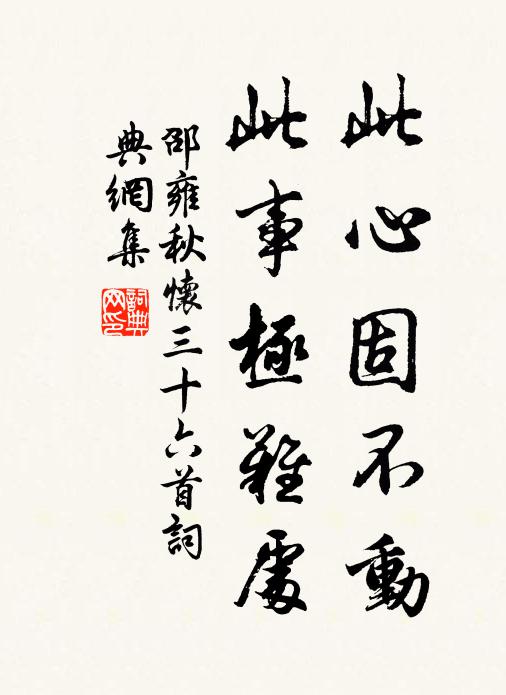 此心固不動
此事極難處
邵雍秋懷三十六首詞
典網集
詞典
網印